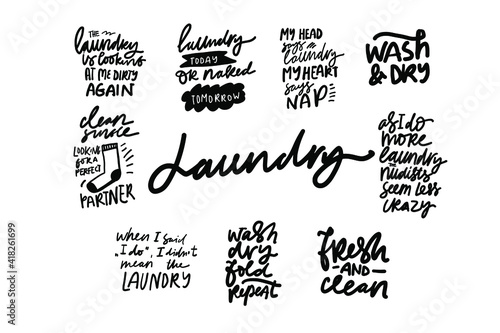 THE
laundry
IS LOOKING
AT ME DIRTY
AGAIN
laundry
TODAY
OR naked
TOMORROW
MY HEAD
says a
laundry
MY HEART
says
NAP
WASH
& DRY
clean
single
LOOKING
FOR A
PERFECT
PARTNER
Laundry
as I do
MORE
laundry
THE
nudists
seem less
CRAZY
when I said
„I do", I didn't
mean the
LAUNDRY
wash
dry
fold
REPEAT
fresh
-AND-
clean
Adobe Stock | #418261699